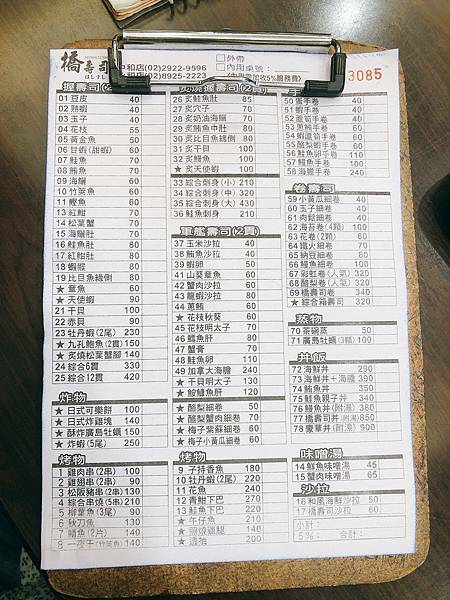 橋壽司
はしすし
中和店(02)2922-9596
(02)8925-2223
□外帶
□內用桌號:
3085
握壽司(2
01 豆皮 40
02 熟蝦 40
03 玉子 40
04 花枝 55
05 黃金魚 50
06 甘蝦(甜蝦) 60
07 鮭魚 70
08 鮪魚 70
09 海鱺 60
10 竹筴魚 60
11 鰹魚 60
13 紅魽 70
14 松葉蟹 70
15 海鱺肚 70
16 鮭魚肚 80
17 紅魽肚 80
18 蝦猴 80
19 比目魚緣側 80
★ 章魚 60
★ 天使蝦 90
21 干貝 100
22 赤貝 90
23 牡丹蝦(2尾) 230
★ 九孔鮑魚(2貫) 150
★ 炙燒松葉蟹腳 140
24 綜合6貫 330
25 綜合12貫 420
炸物
★ 日式可樂餅 100
★ 日式炸雞塊 140
★ 酥炸廣島牡蠣 150
★ 炸蝦(5尾) 250
烤物
1 雞肉串(2串) 100
2 雞翅串(2串) 90
3 松阪豬串(2串) 130
4 綜合串燒(5串) 210
5 柳葉魚(3尾) 90
6 秋刀魚 90
7 鯖魚(2片) 140
8 一夜干(竹筴魚) 140
炙燒握壽司(2貫)
26 炙鮭魚肚 85
27 炙穴子 90
28 炙奶油海鱺 70
29 炙鮪魚中肚 80
30 炙比目魚緣側 80
31 炙干貝 100
32 炙鰻魚 100
★ 炙天使蝦 90
33 綜合刺身(小) 210
34 綜合刺身(中) 320
35 綜合刺身(大) 430
36 鮭魚刺身 210
軍艦壽司(2貫)
37 玉米沙拉 40
38 鮪魚沙拉 40
39 蝦卵 50
41 山葵章魚 60
42 蟹肉沙拉 60
43 龍蝦沙拉 80
44 蔥鮪 60
★ 花枝秋葵 60
45 花枝明太子 70
46 鱈魚肝 80
47 蟹膏 70
48 鮭魚卵 110
49 加拿大海膽 240
★ 干貝明太子 130
★ 鮟鱇魚肝 120
★ 酪梨細卷 50
★ 酪梨蟹肉細卷 70
★ 梅子紫蘇細卷 60
★ 梅子小黃瓜細卷 60
烤物
9 子持香魚 180
10 牡丹蝦(2尾) 220
11 花魚 240
12 青魽下巴 220
13 鮭魚下巴 200
★ 午仔魚 250
★ 照燒雞腿 140
★ 透抽 200
手
50 蛋手卷 40
51 蝦手卷 50
52 蘆筍手卷 40
53 蔥鮪手卷 60
54 蝦蘆筍手卷 60
55 酪梨蝦手卷 60
56 鮭魚卵手卷 110
57 鰻魚手卷 100
58 海膽手卷 240
卷壽司
59 小黃瓜細卷 40
60 玉子細卷 40
61 肉鬆細卷 40
62 海苔卷(4顆) 100
63 花卷(2顆) 60
64 鐵火細卷 70
65 納豆細卷 60
66 鰻魚細卷 100
67 彩虹卷(人氣) 320
68 酪梨卷(人氣) 320
69 橋壽司卷 340
★ 綜合箱壽司 320
蒸物
71 茶碗蒸 50
★ 廣島牡蠣(3顆) 100
丼飯
72 海鮮丼 290
73 海鮮丼+海膽 390
74 鮪魚丼 350
75 鮭魚親子丼 340
76 鰻魚丼(附湯) 360
77 橋壽司丼(附湯) 850
78 豪華丼(附湯) 900
味噌湯
14 鮮魚味噌湯 45
15 蟹肉味噌湯 65
沙拉
16 和風海鮮沙拉 50
17 橋壽司沙拉 60
小計:
5%: 合計: